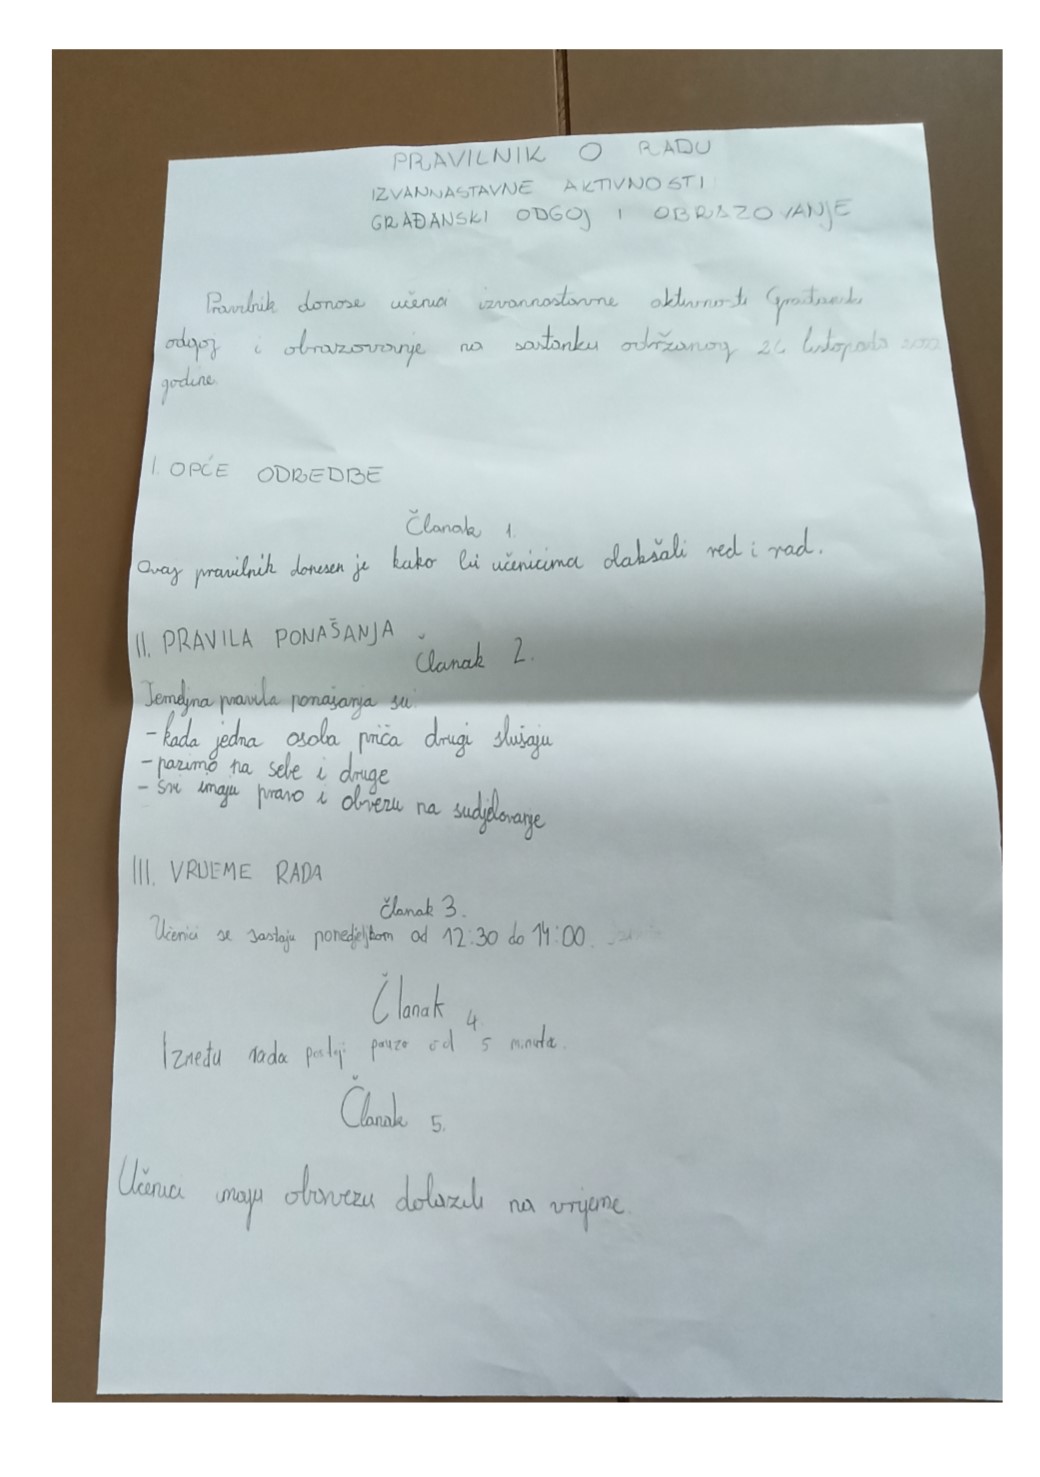 PRAVILNIK O RADU
IZVANNASTAVNE AKTIVNOSTI
GRAĐANSKI ODGOJ I OBRAZOVANJE
Pravilnik donose učenici izvannastavne aktivnosti Građanski
odgoj i obrazovanje na sastanku održanog listopada
godine.
I. OPĆE ODREDBE
Članak 1.
Ovaj pravilnik donesen je kako bi učenicima olakšali red i rad.
II. PRAVILA PONAŠANJA
Članak 2.
Temeljna pravila ponašanja su:
- kada jedna osoba priča drugi slušaju
- pazimo na sebe i druge
- svi imaju pravo i obvezu na sudjelovanje
III. VRIJEME RADA
članak 3.
Učenici se sastaju ponedjeljkom od 12:30 do 14:00.
Članak 4
Između rada postoji pauza od 5 minuta.
Članak 5.
Učenici imaju obavezu dolaziti na vrijeme.